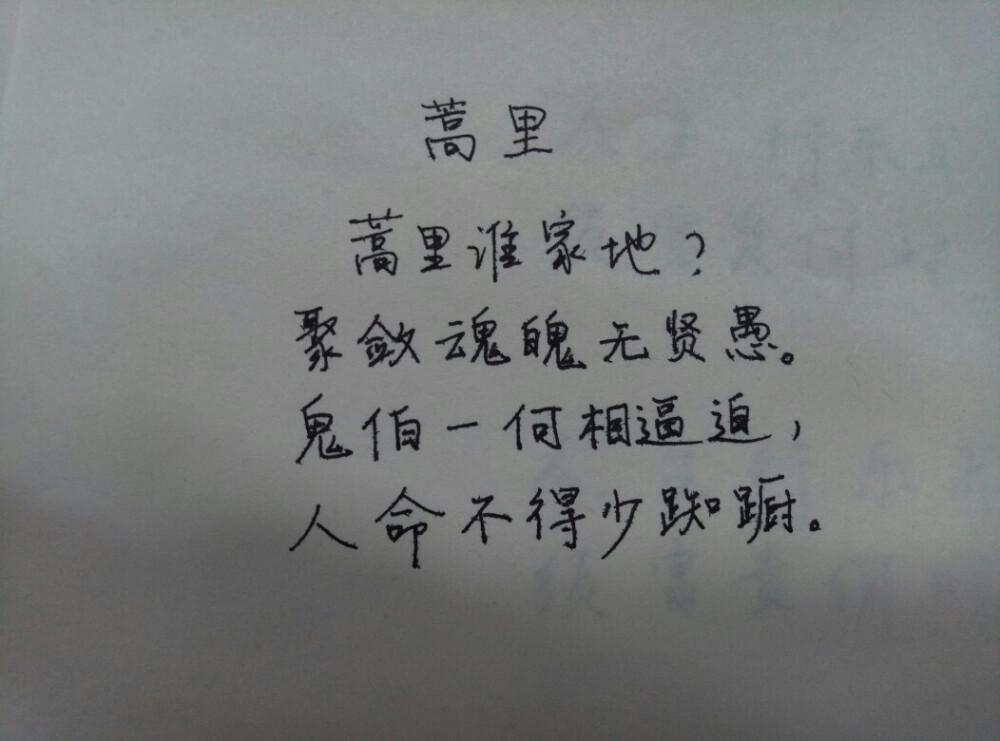 蒿里
蒿里谁家地?
聚敛魂魄无贤愚。
鬼伯一何相逼迫,
人命不得少踟蹰。